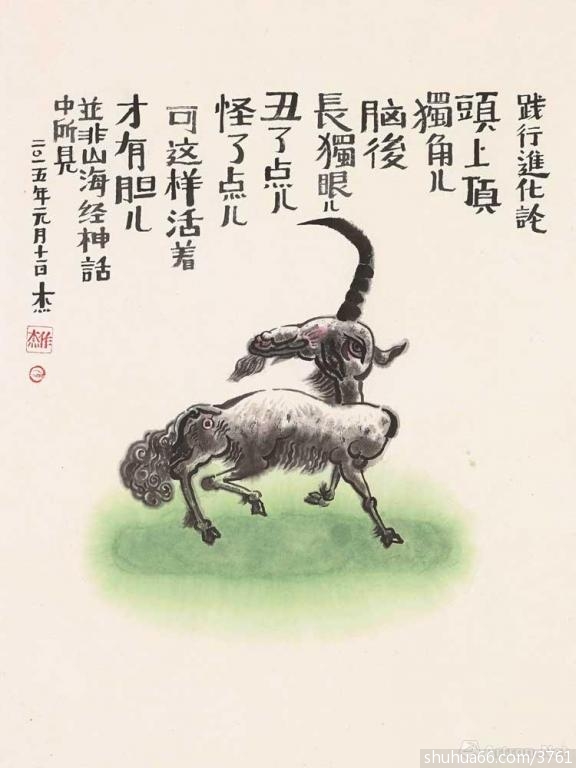 践行進化論
頭上頂
獨角儿
脑後
長獨眼儿
丑了点儿
怪了点儿
可这样活着
才有胆儿
並非山海经神話
中所見
二〇一五年元月十一日 杰
shuhua66.com/3761